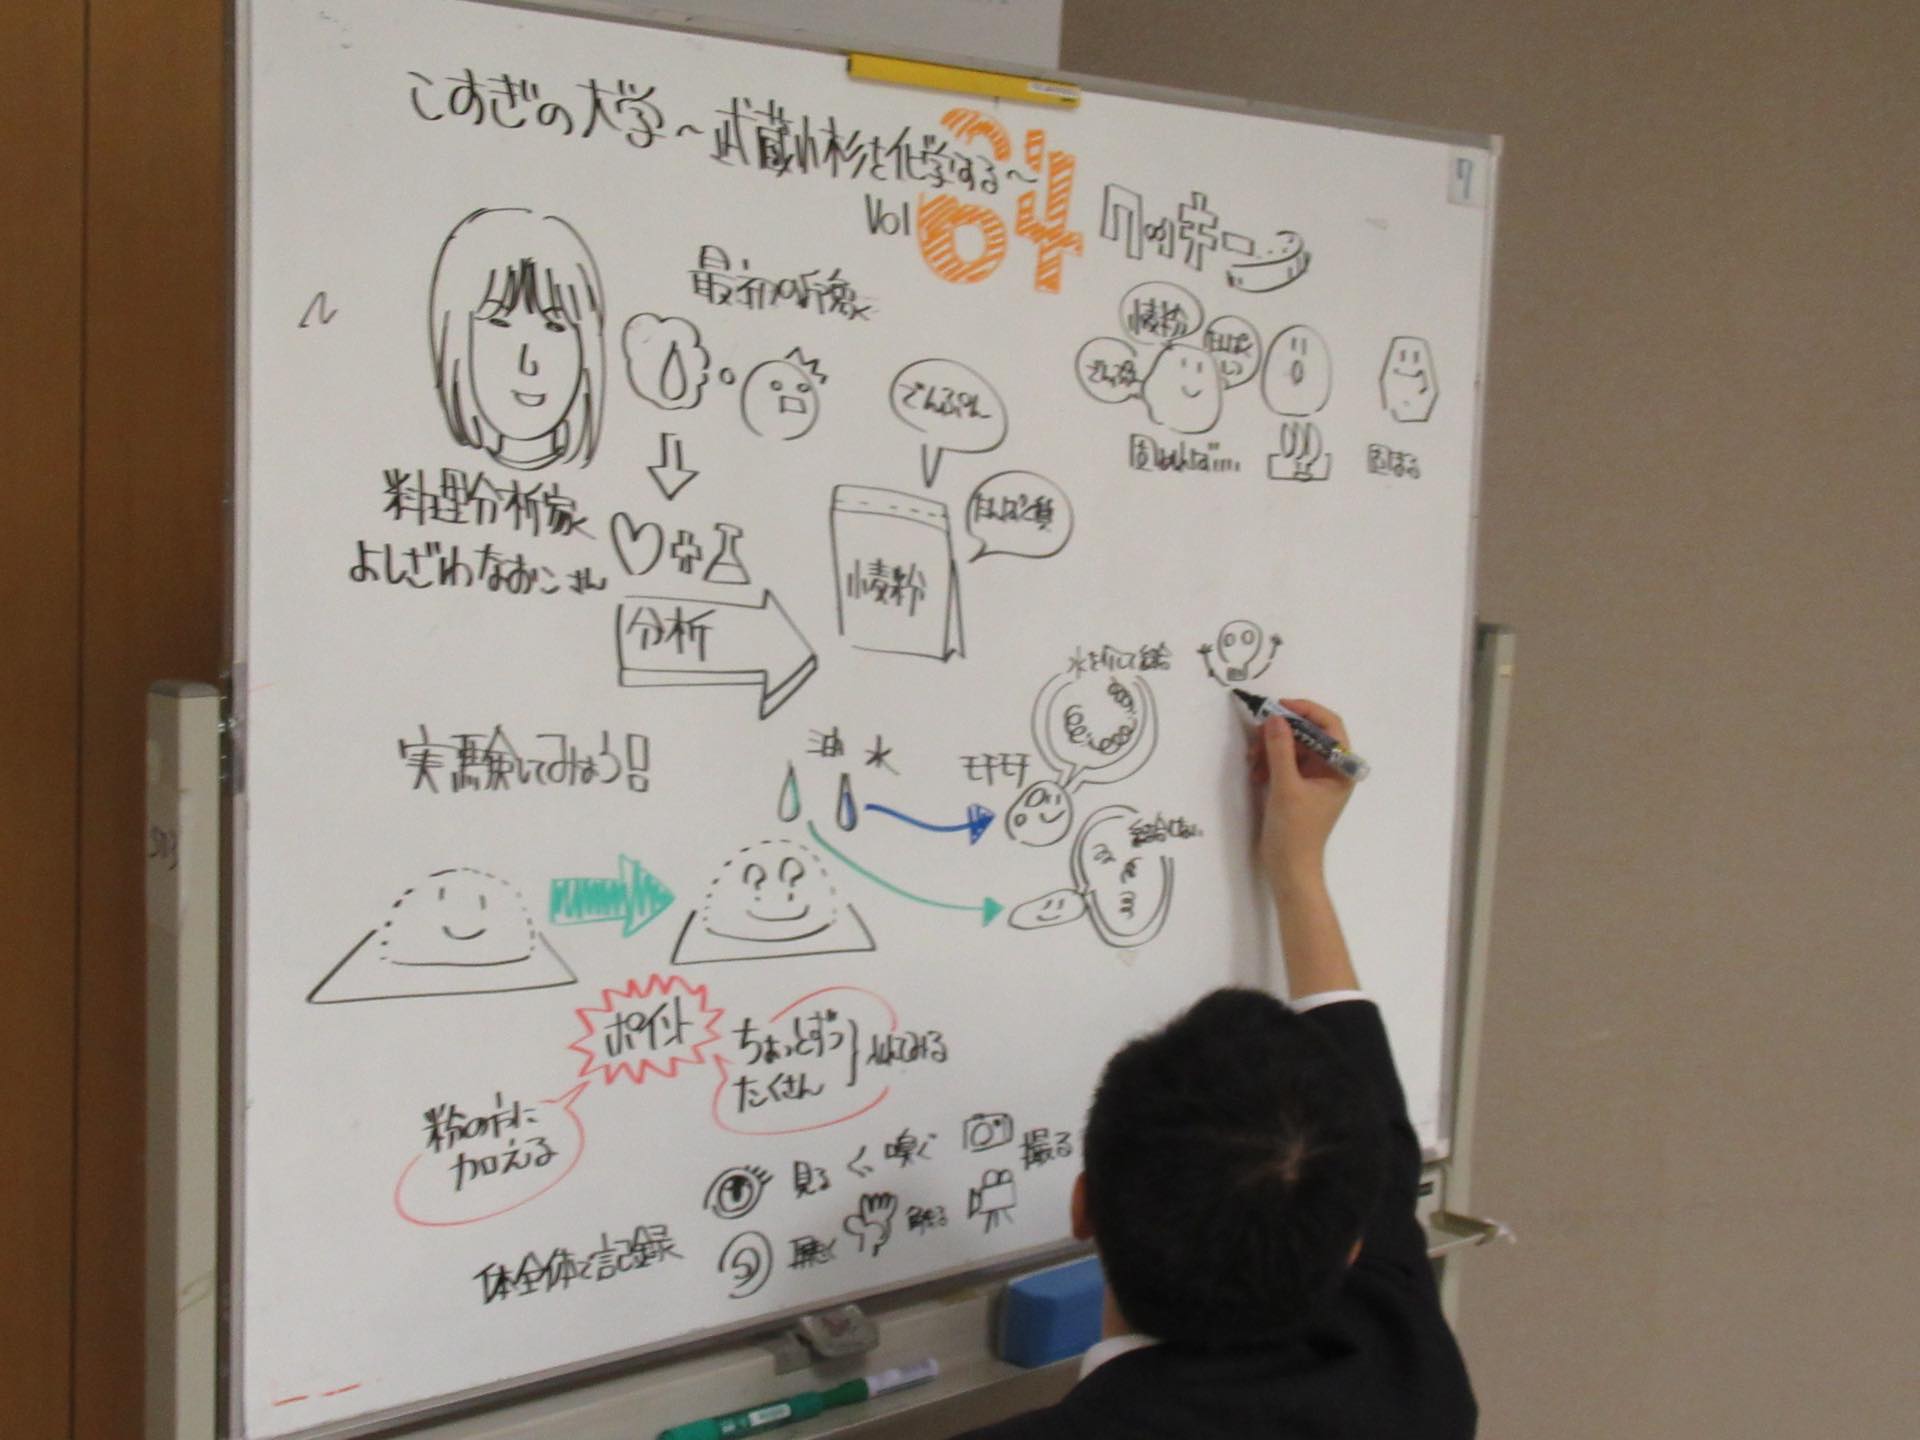 こすぎの大学～武蔵小杉を化学する～
Vol 64 クッキー
最初の
料理分析家
よしざわなおこさん
分析
でんぷん
たんぱく質
小麦粉
小麦粉
でんぷん
たんぱくしつ
固まる
実験してみよう!!
油 水
モチモチ
水を介して結合
結合しない
ポイント
ちょっとずつ
たくさん
入れてみる
粉の方に
加える
体全体で記録
見る
嗅ぐ
撮る
聴く
触る
7
503